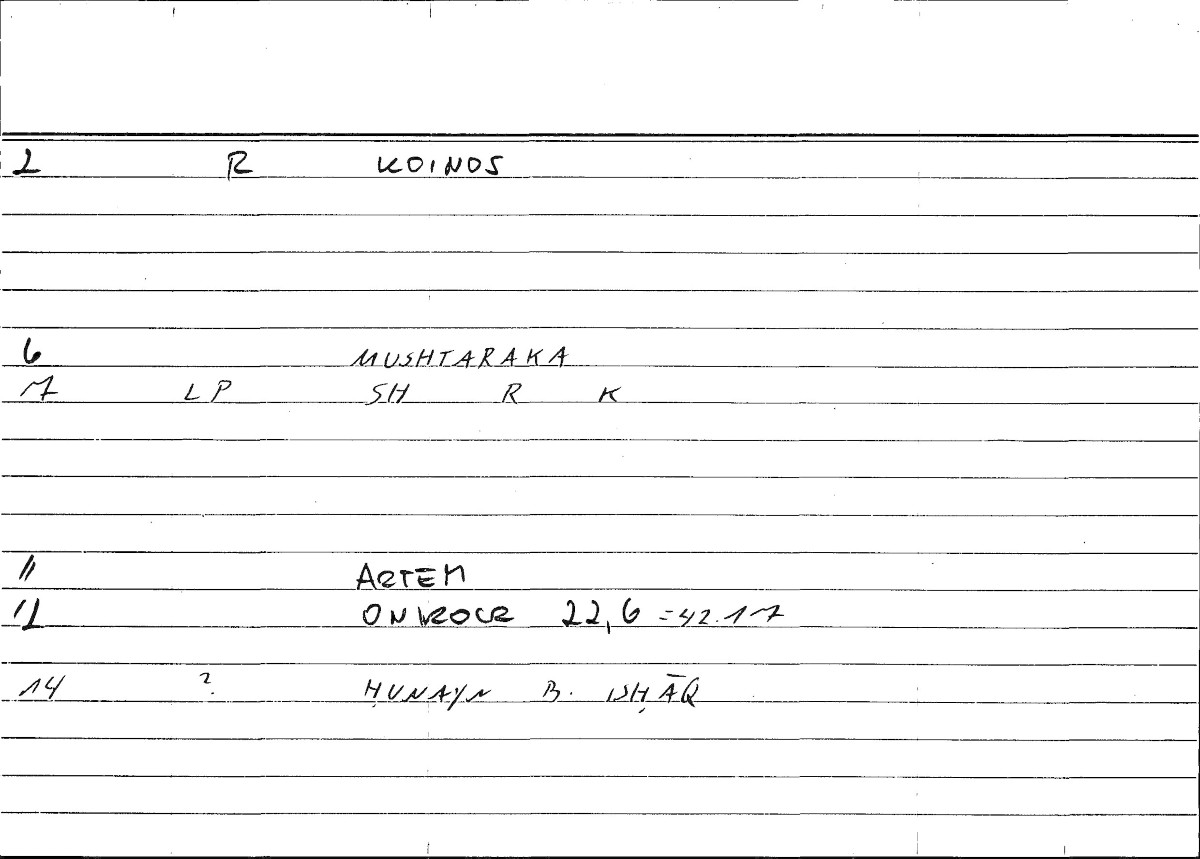 2 R KOINOS
6 MUSHTARAKA
7 LP SH R K
11 ARTEM
12 ONIROCR 22,6 = 42.17
14 ? ḤUNAYN B. ISḤĀQ